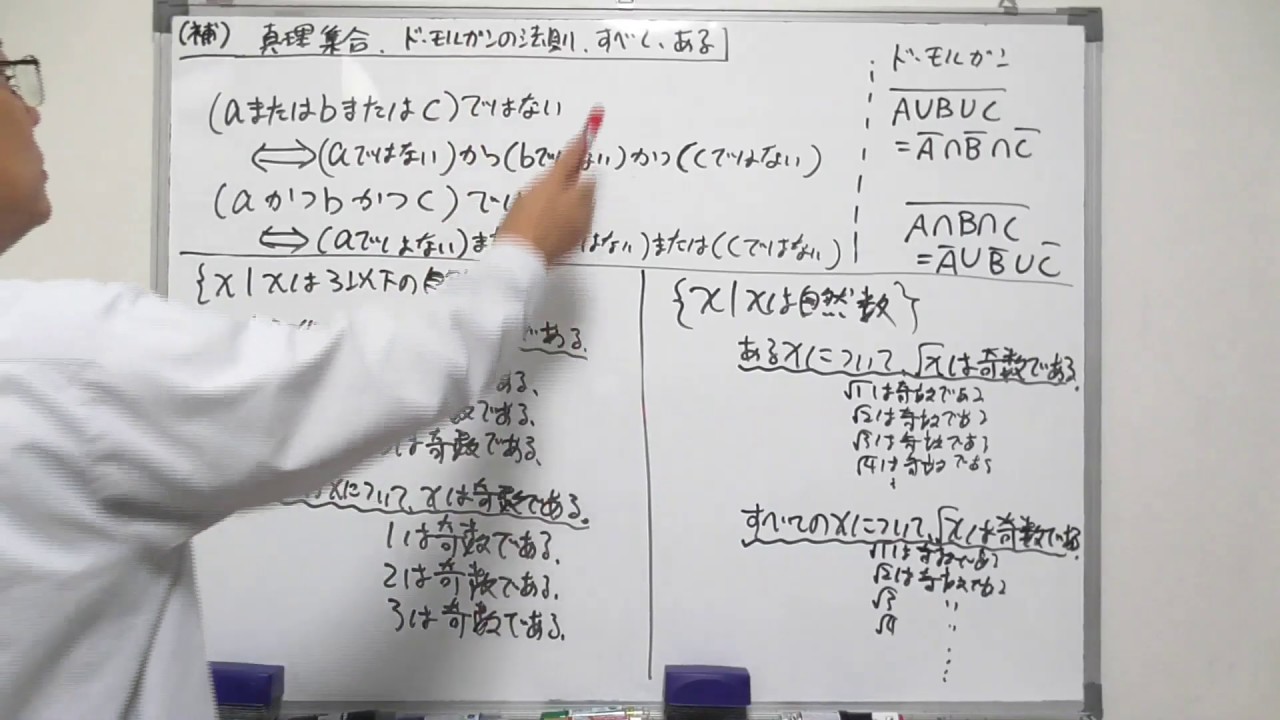 (補) 真理集合、ド・モルガンの法則、すべて、ある
(aまたはbまたはc)ではない
⟺(aではない)かつ(bではない)かつ(cではない)
(aかつbかつc)では
⟺(aではない)また はない)または(cではない)
ド・モルガン
$\overline{A∪B∪C}$
=$\overline{A}$∩$\overline{B}$∩$\overline{C}$
$\overline{A∩B∩C}$
=$\overline{A}$∪$\overline{B}$∪$\overline{C}$
{x|xは3以下の自
である。
ある、
数である、
は奇数である、
xについて、xは奇数である。
1は奇数である、
2は奇数である、
3は奇数である、
{x|xは自然数}
あるxについて、√xは奇数である。
√1は奇数である
√2は奇数である
√3は奇数である
√4は奇数である
すべてのxについて、√xは奇数である。
√1は奇数である
√2は奇数である
√3 〃
√4 〃